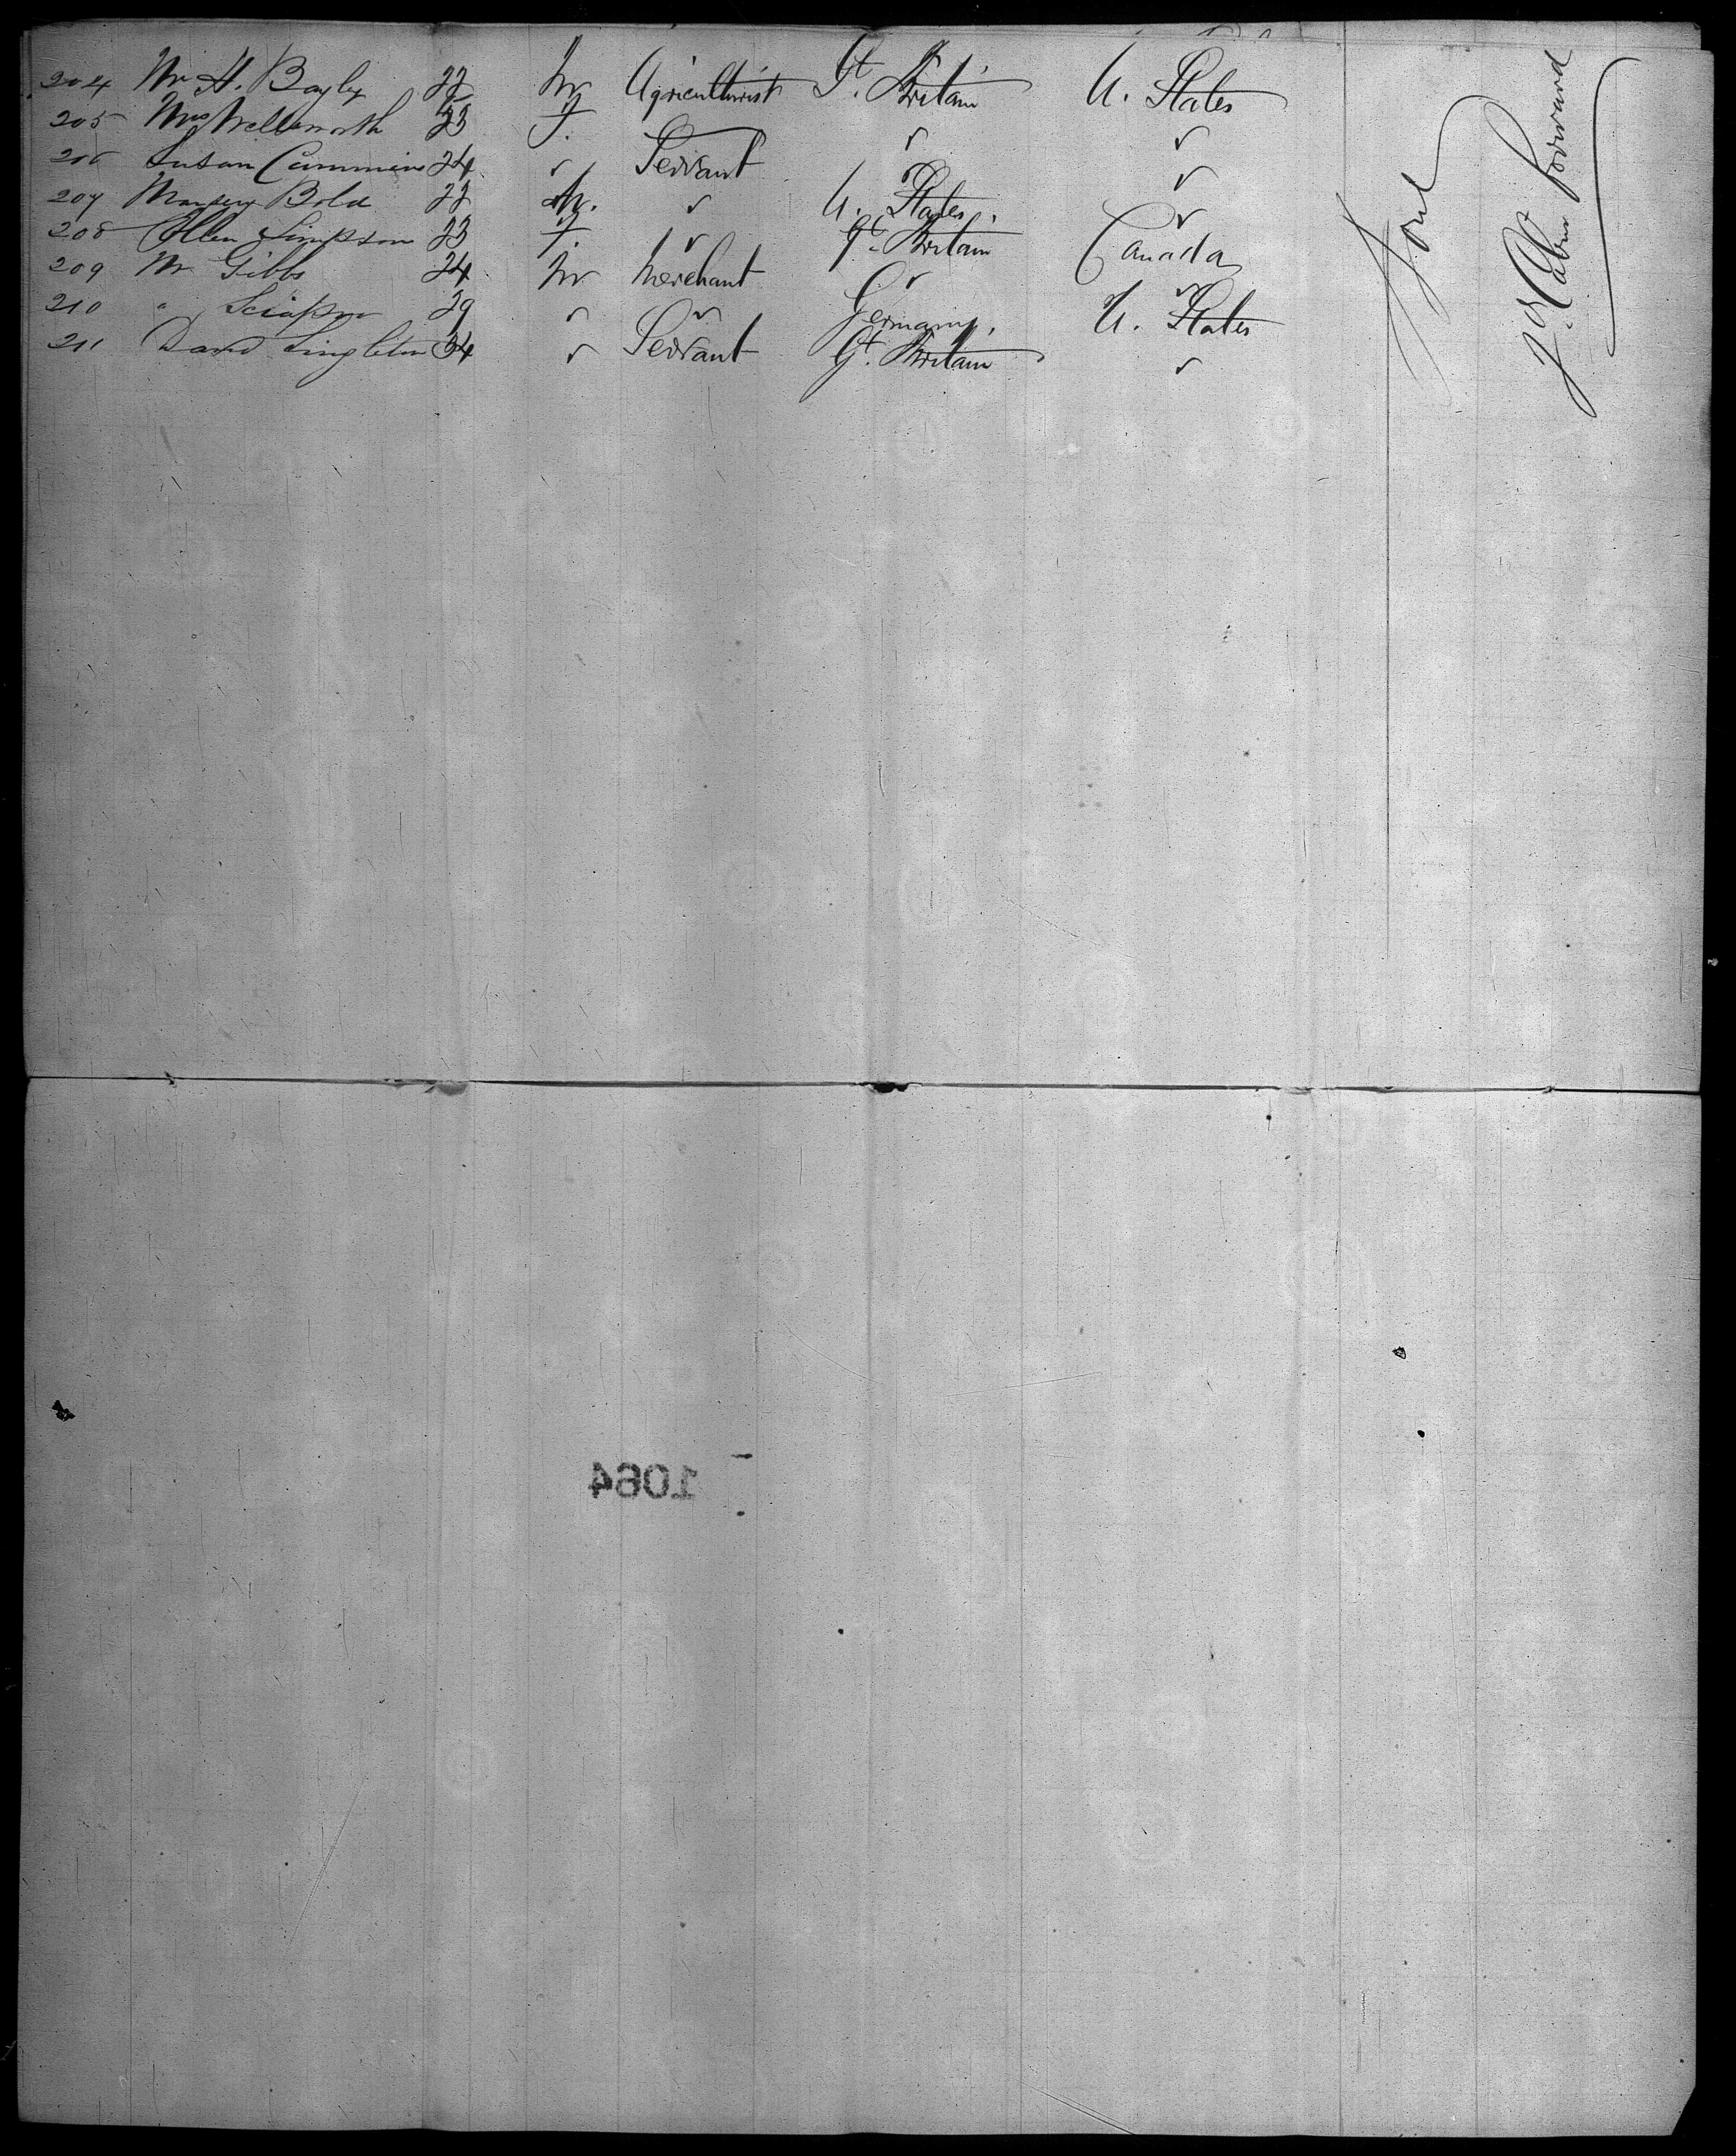 204 Mr H. Bayley 22 M Agriculturist Gt. Britain U. States
205 Mrs Wellsworth 23 F. ✓ ✓
206 Susan Cummins 24 ✓ Servant ✓ ✓
207 Bold 22 M. ✓ U. States. ✓
208 Ellen Simpson 23 F. ✓ Gt. Britain Canada
209 Mr Gibbs 24 M Merchant ✓ ✓
210 " 29 ✓ ✓ Germany. U. States
211 David Singleton 34 ✓ Servant Gt. Britain ✓
Cabin Forward
1064